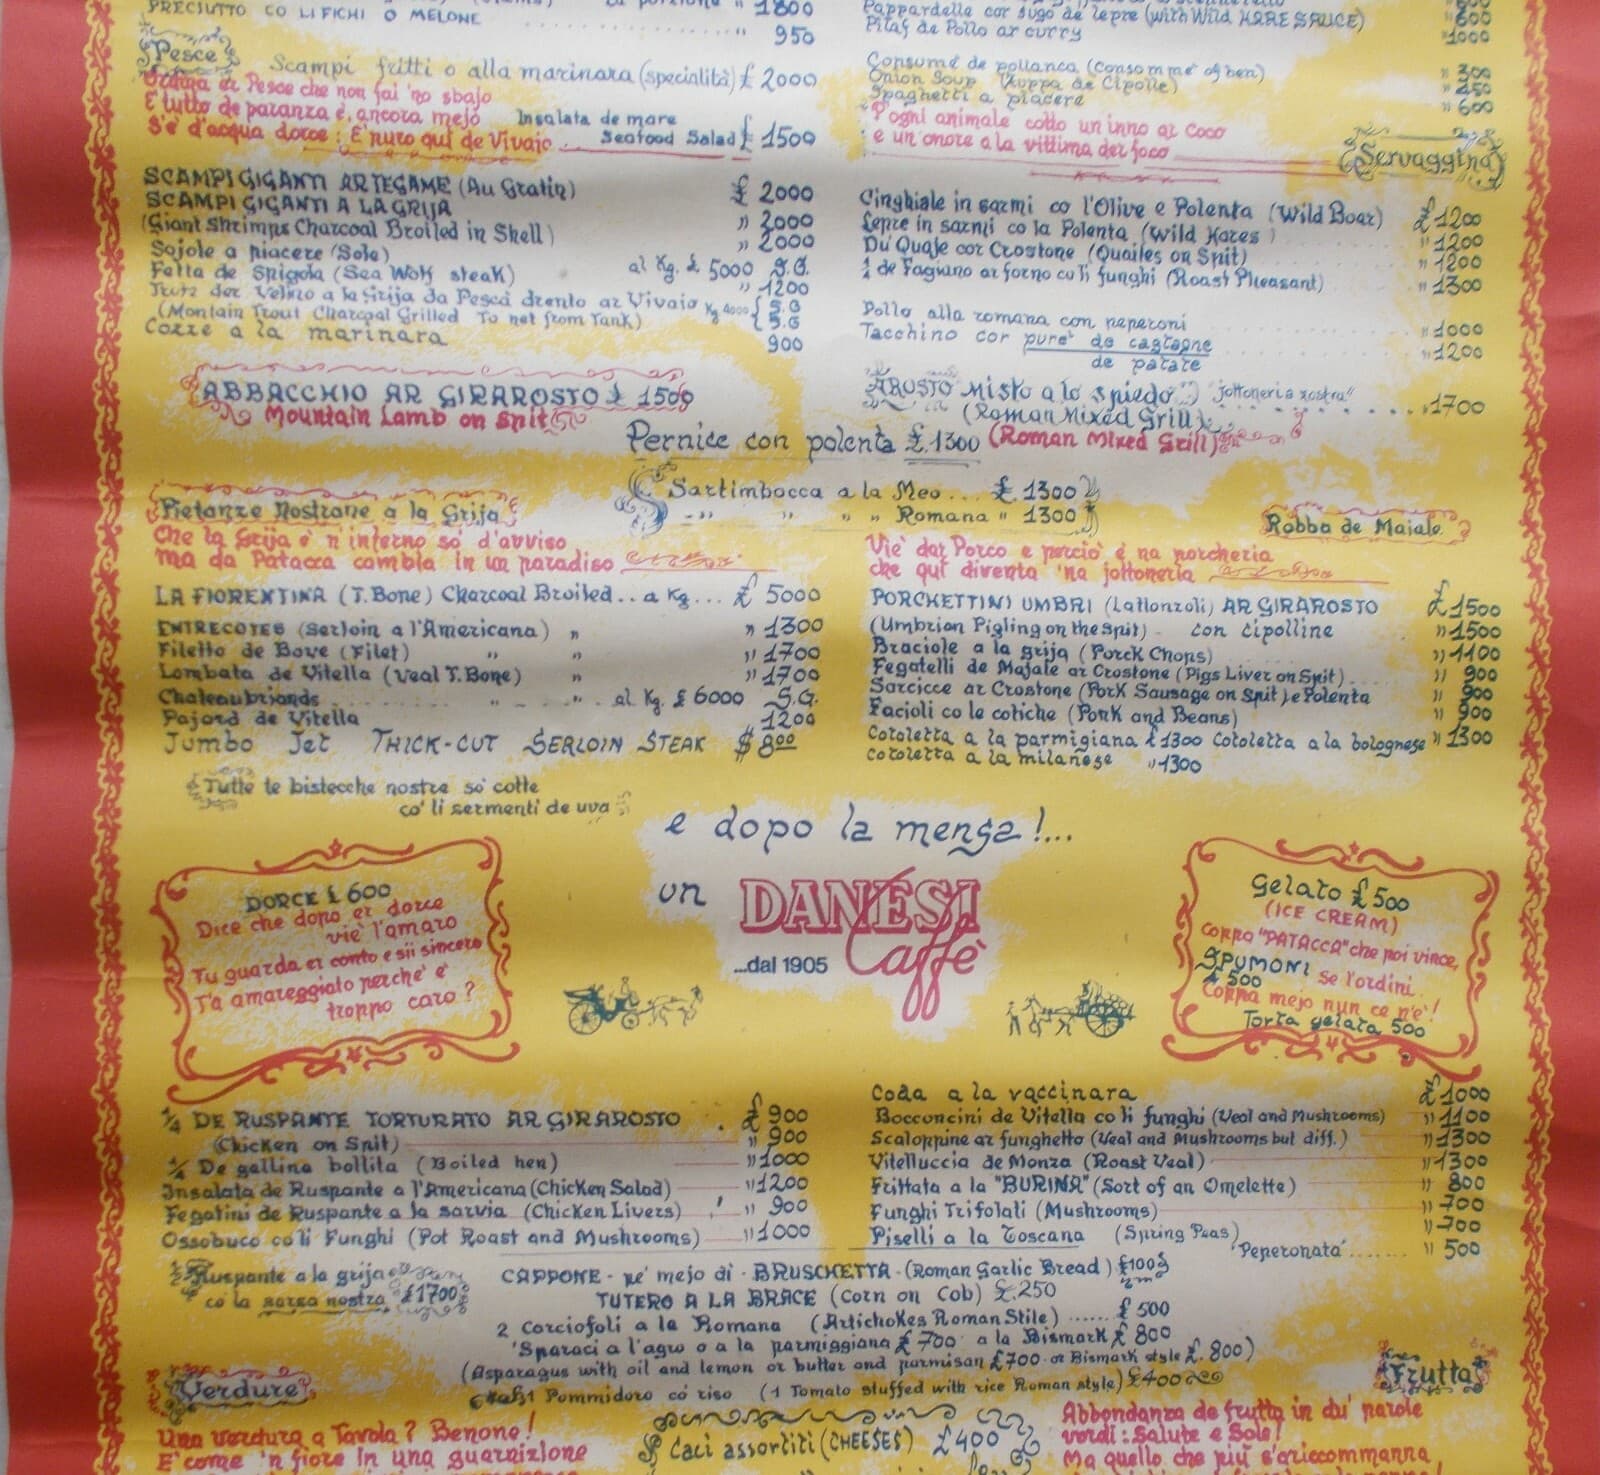 PRECIUTTO CO LI FICHI O MELONE " 1800
950
Pappardelle cor sugo de lepre (with Wild HARE SAUCE) " 600
Pilaf de Pollo ar curry " 1000
Pesce
Scampi fritti o alla marinara (specialità) £ 2000
Ordina er Pesce che non fai 'no sbajo
E tutto de paranza è, ancora mejo
S'è d'acqua dorce: E' puro qui de Vivaio
Insalata de mare
Seafood Salad £ 1500
Consumé de pollanca (consommé of hen) " 300
Onion Soup (Zuppa de Cipolle) " 450
Spaghetti a piacere " 600
P'ogni animale cotto un inno ar Coco
e un'onore a la vittima der foco
Servaggina
SCAMPI GIGANTI AR TEGAME (Au Gratin) £ 2000
SCAMPI GIGANTI A LA GRIJA " 2000
(Giant Shrimps Charcoal Broiled in Shell) " 2000
Sojole a piacere (Sole)
Fetta de Spigola (Sea Wolf steak) al Kg. £ 5000 S.G.
" 1200
Trota der Velino a la Grija da Pescà drento ar Vivaio Kg 4000 { S.G
(Montain Trout Charcoal Grilled To net from Tank) { S.G
Cozze a la marinara 900
Cinghiale in sarmi co l'Olive e Polenta (Wild Boar) £ 1200
Lepre in sarmi co la Polenta (Wild Hares) " 1200
Du Quaje cor Crostone (Quailes on Spit) " 1200
¼ de Fagiano ar forno co li funghi (Roast Pheasant) " 1300
Pollo alla romana con peperoni " 1000
Tacchino cor purè de castagne " 1200
de patate
ABBACCHIO AR GIRAROSTO £ 1500
Mountain Lamb on Spit
ARUSTO Misto a lo spiedo "jottoneria nostra" " 1700
(Roman Mixed Grill)
Pernice con polenta £ 1300 (Roman Mixed Grill)
Sartimbocca a la Meo... £ 1300
" " " " Romana " 1300
Pietanze Nostrane a la Grija
Che la Grija è n'inferno so' d'avviso
ma da Patacca cambia in un paradiso
Robba de Maiale
Viè dar Porco e perciò è na porcheria
che qui diventa 'na jottoneria
LA FIORENTINA (T. Bone) Charcoal Broiled .. a Kg ... £ 5000
ENTRECOTES (Serloin a l'Americana) " " 1300
Filetto de Bove (Filet) " " " 1700
Lombata de Vitella (Veal T. Bone) " " 1700
Chateaubriands " " al Kg. £ 6000 S.G.
Pajard de Vitella 1200
Jumbo Jet THICK-CUT SERLOIN STEAK $ 8.00
Tutte le bistecche nostre so' cotte
co' li sermenti de uva
PORCHETTINI UMBRI (Lattonzoli) AR GIRAROSTO £ 1500
(Umbrian Pigling on the Spit) - con cipolline " 1500
Braciole a la grija (Porck Chops) " 1100
Fegatelli de Majale ar Crostone (Pigs Liver on Spit) " 900
Sarcicce ar Crostone (Pork Sausage on Spit) e Polenta " 900
Facioli co le cotiche (Pork and Beans) " 900
Cotoletta a la parmigiana £ 1300 Cotoletta a la bolognese " 1300
Cotoletta a la milanese " 1300
e dopo la mensa!...
un DANESI
Caffè
...dal 1905
DORCE £ 600
Dice che dopo er dorce
viè l'amaro
Tu guarda er conto e sii sincero
T'a amareggiato perchè è
troppo caro?
Gelato £ 500
(ICE CREAM)
Coppa "PATACCA" che poi vince,
SPUMONI se l'ordini
£ 500
Coppa mejo nun ce n'è!
Torta gelata 500
¼ DE RUSPANTE TORTURATO AR GIRAROSTO £ 900
(Chicken on Spit) " 900
¼ De gallina bollita (Boiled hen) " 1000
Insalata de Ruspante a l'Americana (Chicken Salad) " 1200
Fegatini de Ruspante a la sarvia (Chicken Livers) " 900
Ossobuco co li Funghi (Pot Roast and Mushrooms) " 1000
½ Ruspante a la grija
co la sarsa nostra £ 1700
Coda a la vaccinara £ 1000
Bocconcini de Vitella co li funghi (Veal and Mushrooms) " 1100
Scaloppine ar funghetto (Veal and Mushrooms but diff.) " 1300
Vitelluccia de Monza (Roast Veal) " 1300
Frittata a la "BURINA" (Sort of an Omelette) " 800
Funghi Trifolati (Mushrooms) " 700
Piselli a la Toscana (Spring Peas) " 700
Peperonata " 500
CAPPONE - pe' mejo dì - BRUSCHETTA - (Roman Garlic Bread) £ 100
TUTERO A LA BRACE (Corn on Cob) £. 250
2 Corciofoli a la Romana (Artichokes Roman Stile) £ 500
'Sparaci a l'agro o a la parmiggiana £ 700 a la Bismark £ 800
(Asparagus with oil and lemon or butter and parmisan £ 700 or Bismark style £. 800)
1 Pommidoro co riso (1 Tomato stuffed with rice Roman style) £ 400
Verdure
Frutta
Una verdura a Tavola? Benone!
E' come 'n fiore in una guarnizione
Caci assortiti (CHEESES) £ 400
Abbondanza de frutta in du' parole
vordì: Salute e Sole!
Ma quello che più s'ariccommanna,